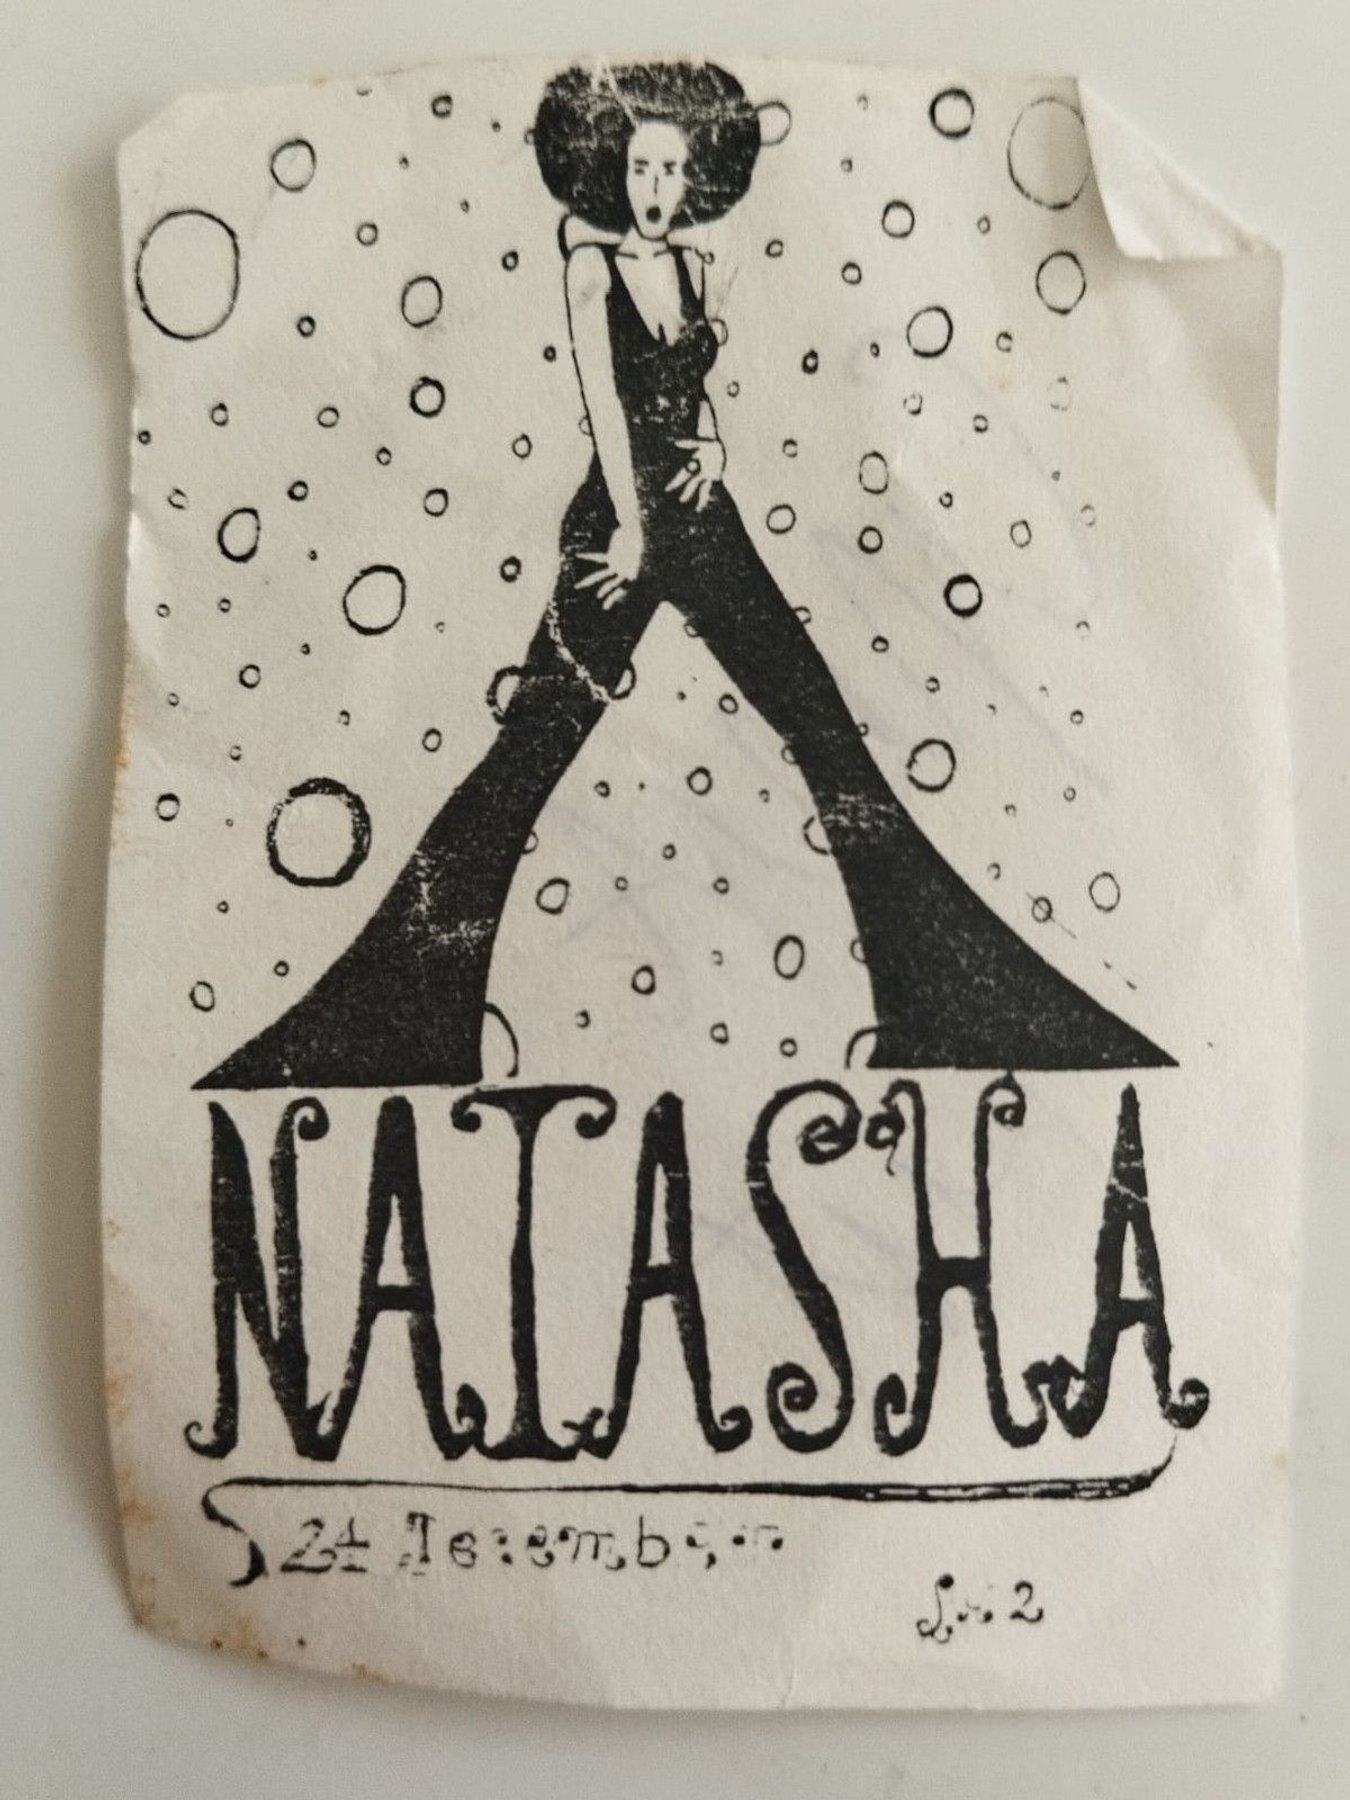 NATASHA
24 December
£n 2